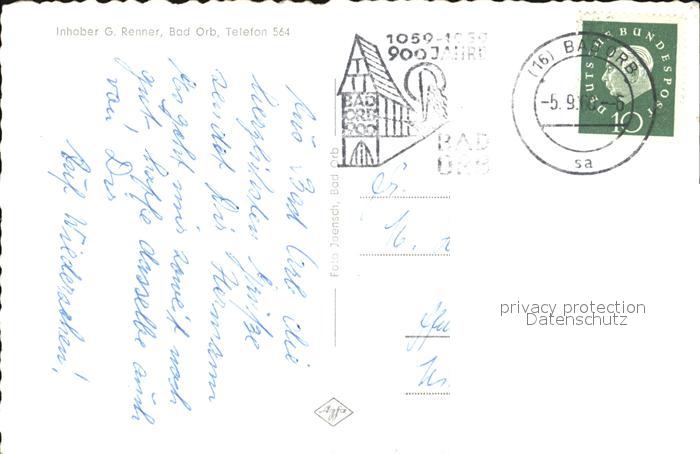 Inhaber G. Renner, Bad Orb, Telefon 564
Aus Bad Orb die
herzlichsten Grüße
sendet Dir Hermann
Es geht mir soweit noch
gut hoffe dasselbe auch
von Dir
Auf Wiedersehen!
Foto Jaensch, Bad Orb
Agfa
1059-1959
900 JAHRE
BAD
ORB
900
BAD
ORB
(16) BAD ORB
-5.9.
sa
DEUTSCHE BUNDESPOST
10
privacy protection
Datenschutz